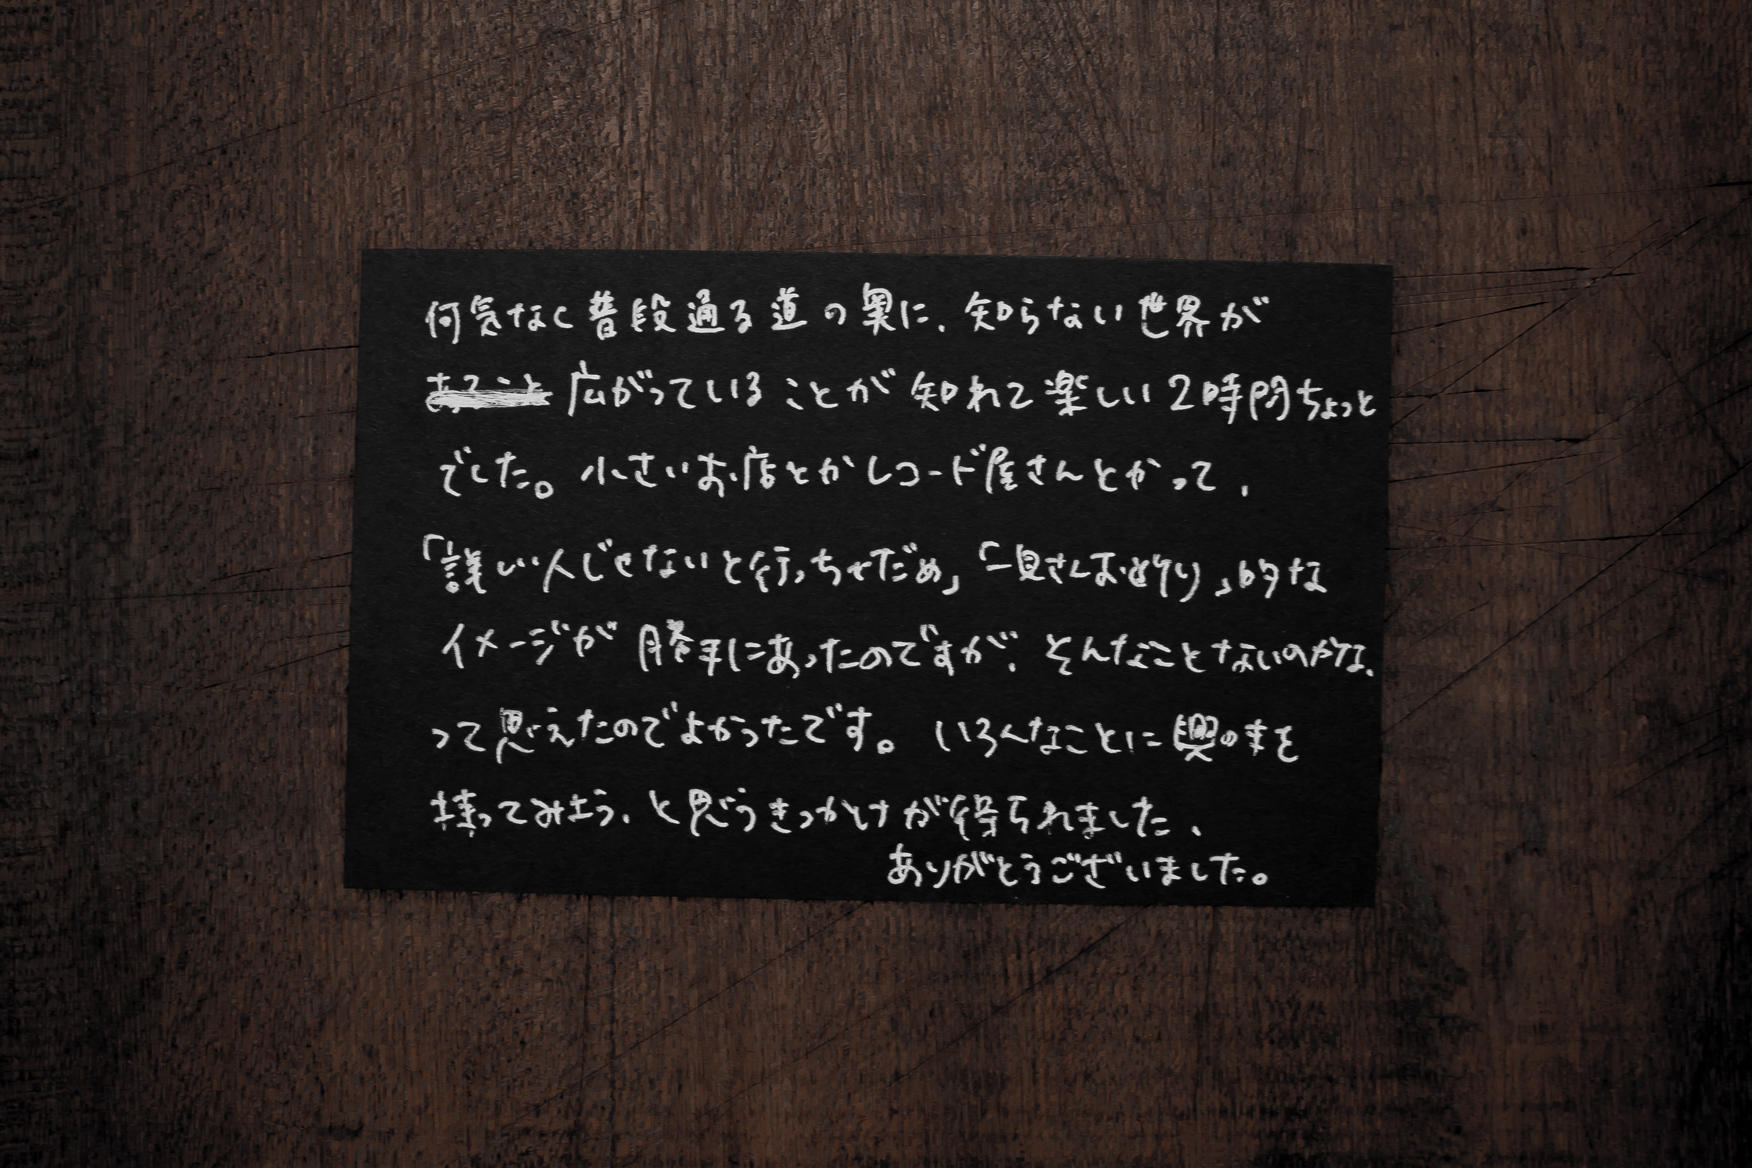 何気なく普段通る道の奥に、知らない世界が
広がっていることが知れて楽しい2時間ちょっと
でした。小さいお店とかレコード屋さんとかって、
「詳しい人じゃないと行っちゃだめ」「一見さんお断り」的な
イメージが勝手にあったのですが、そんなことないのかな、
って思えたのでよかったです。いろんなことに興味を
持ってみよう、と思うきっかけが得られました、
ありがとうございました。